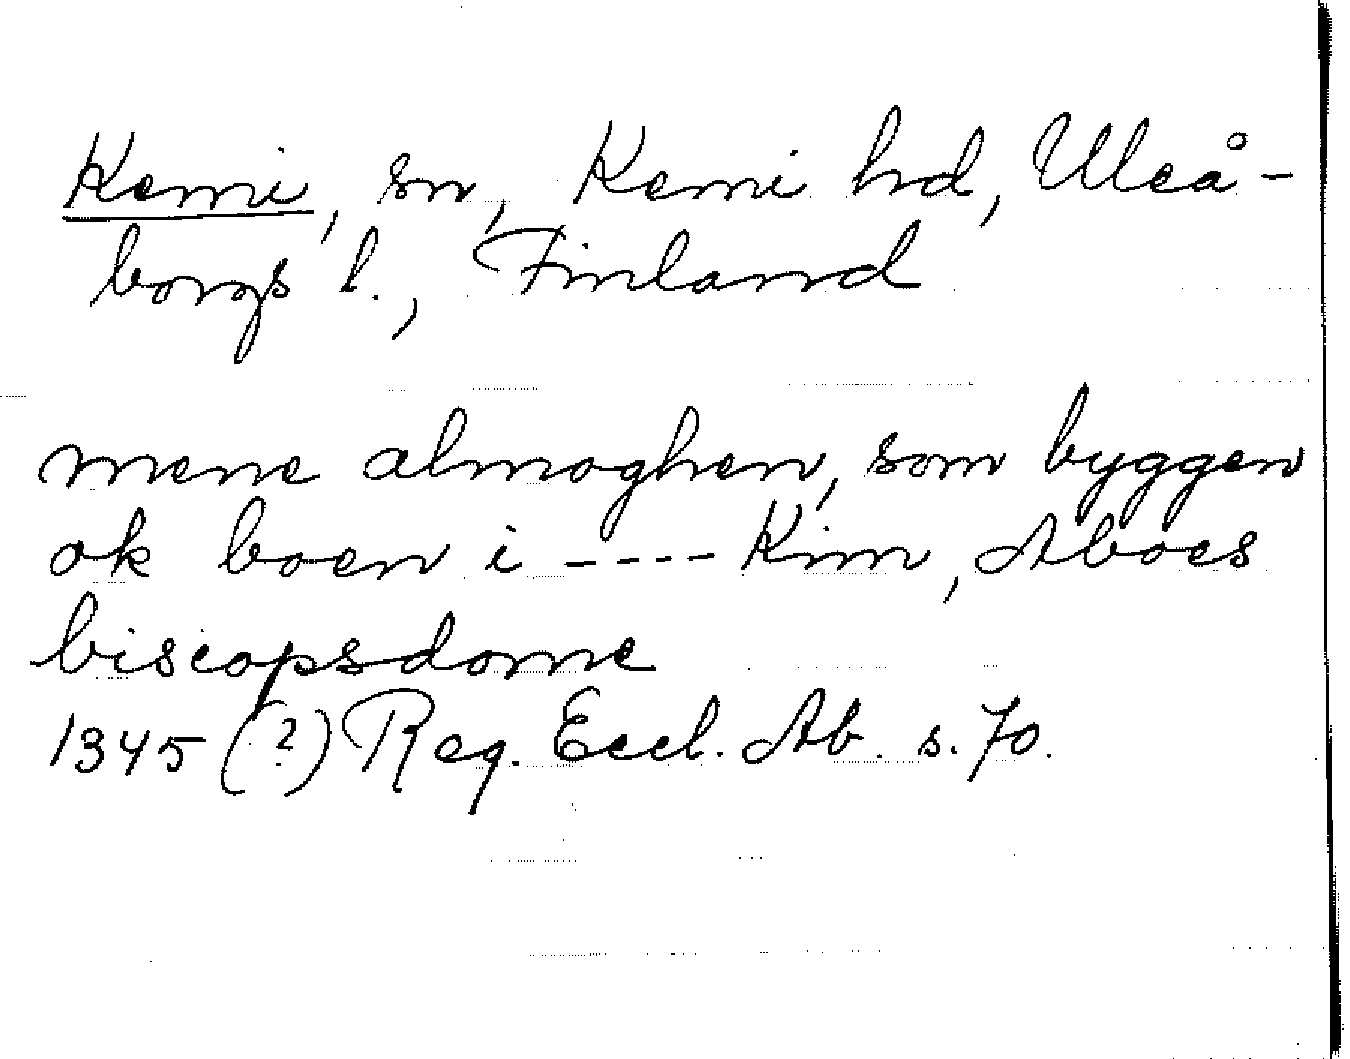 Kemi, sn, Kemi hd, Uleå-
borgs l., Finland
mene almoghen, som byggen
ok boen i ---- Kim, Aboes
biscopsdome
1345 (?) Reg. Eccl. Ab. s. 70.